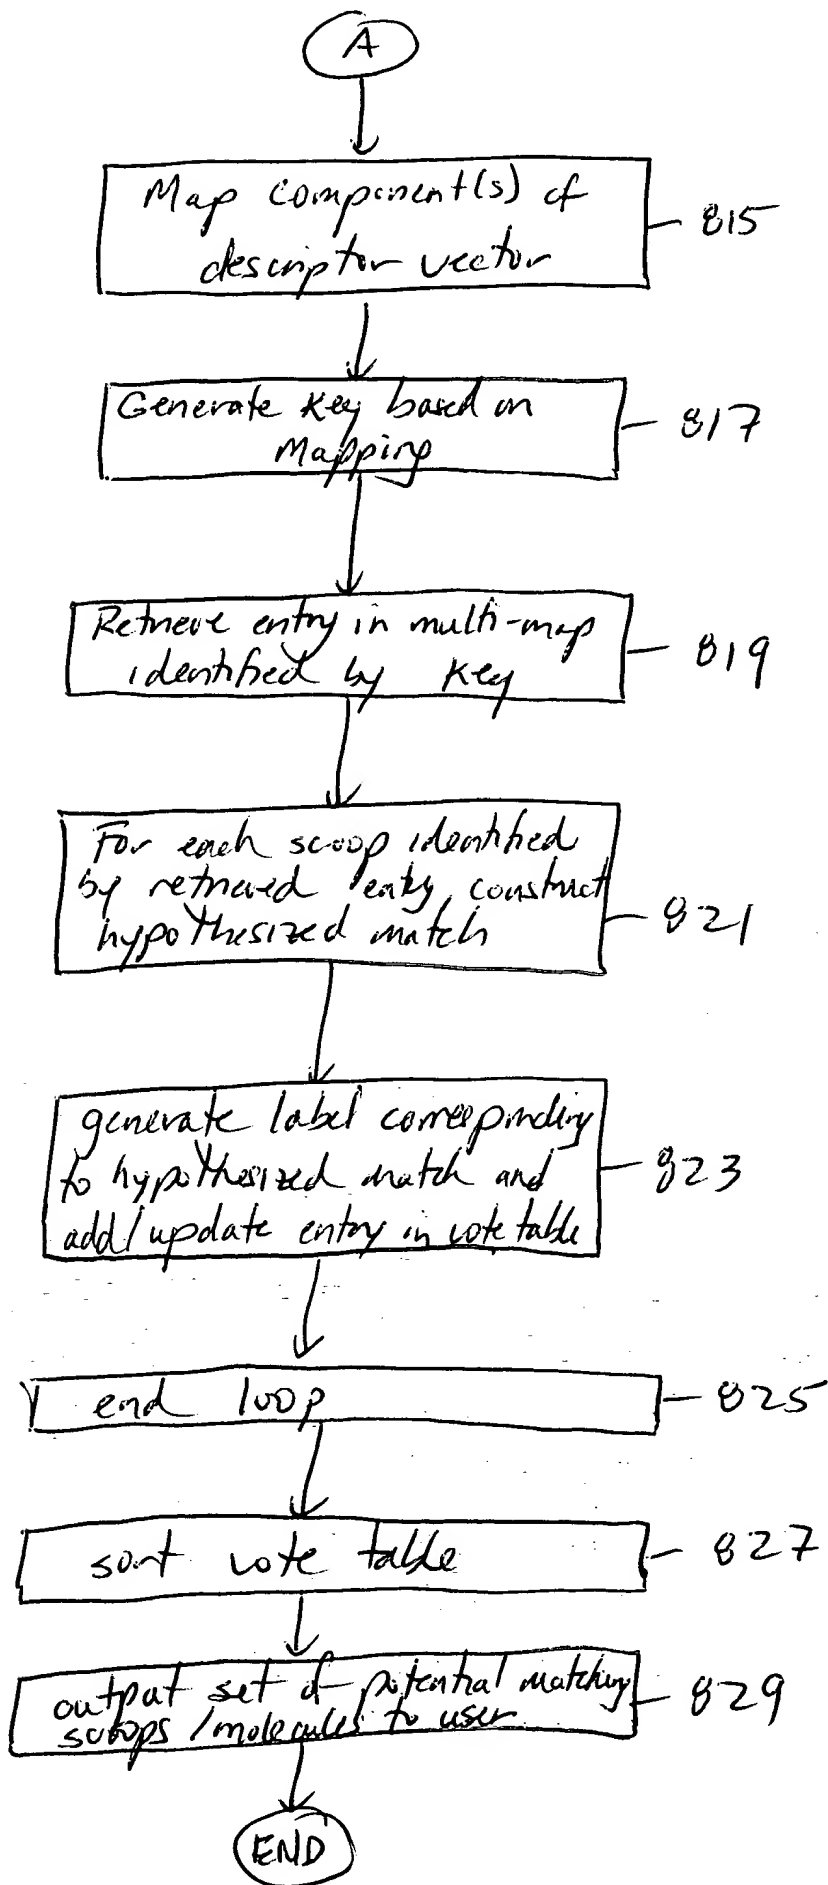 A
Map component(s) of
descriptor vector
815
Generate Key based on
Mapping
817
Retrieve entry in multi-map
identified by Key
819
For each scoop identified
by retrieved entry, construct
hypothesized match
821
generate label corresponding
to hypothesized match and
add/update entry in vote table
823
end loop
825
sort vote table
827
output set of potential matching
scoops/molecules to user
829
END